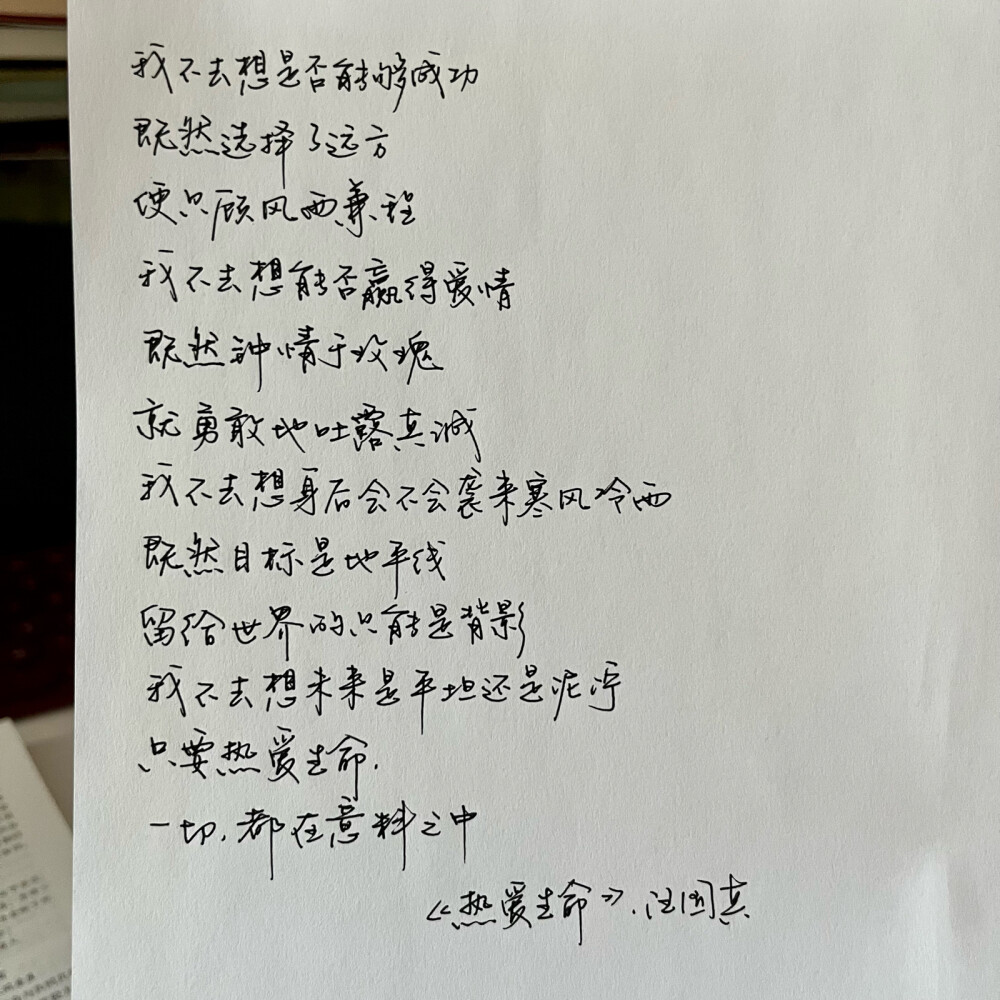 我不去想是否能够成功
既然选择了远方
便只顾风雨兼程
我不去想能否赢得爱情
既然钟情于玫瑰
就勇敢地吐露真诚
我不去想身后会不会袭来寒风冷雨
既然目标是地平线
留给世界的只能是背影
我不去想未来是平坦还是泥泞
只要热爱生命，
一切，都在意料之中
《热爱生命》，汪国真